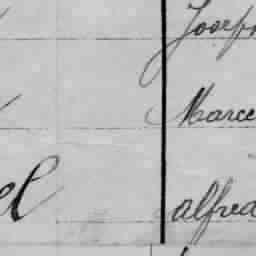 Joseph
Marce
el alfred